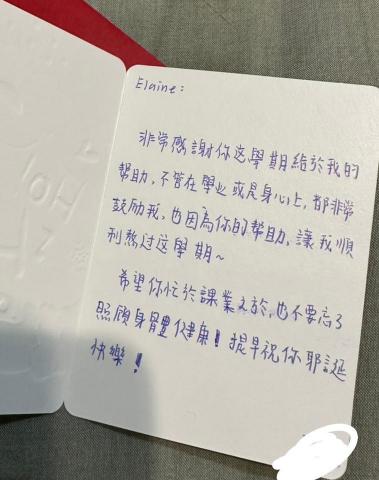 Elaine:
非常感謝你这學期給於我的
幫助,不管在學业或是身心上,都非常
鼓励我,也因為你的幫助,讓我順
利熬过这學期~
希望你忙於課業之於,也不要忘了
照顧身體健康!提早祝你耶誕
快樂!